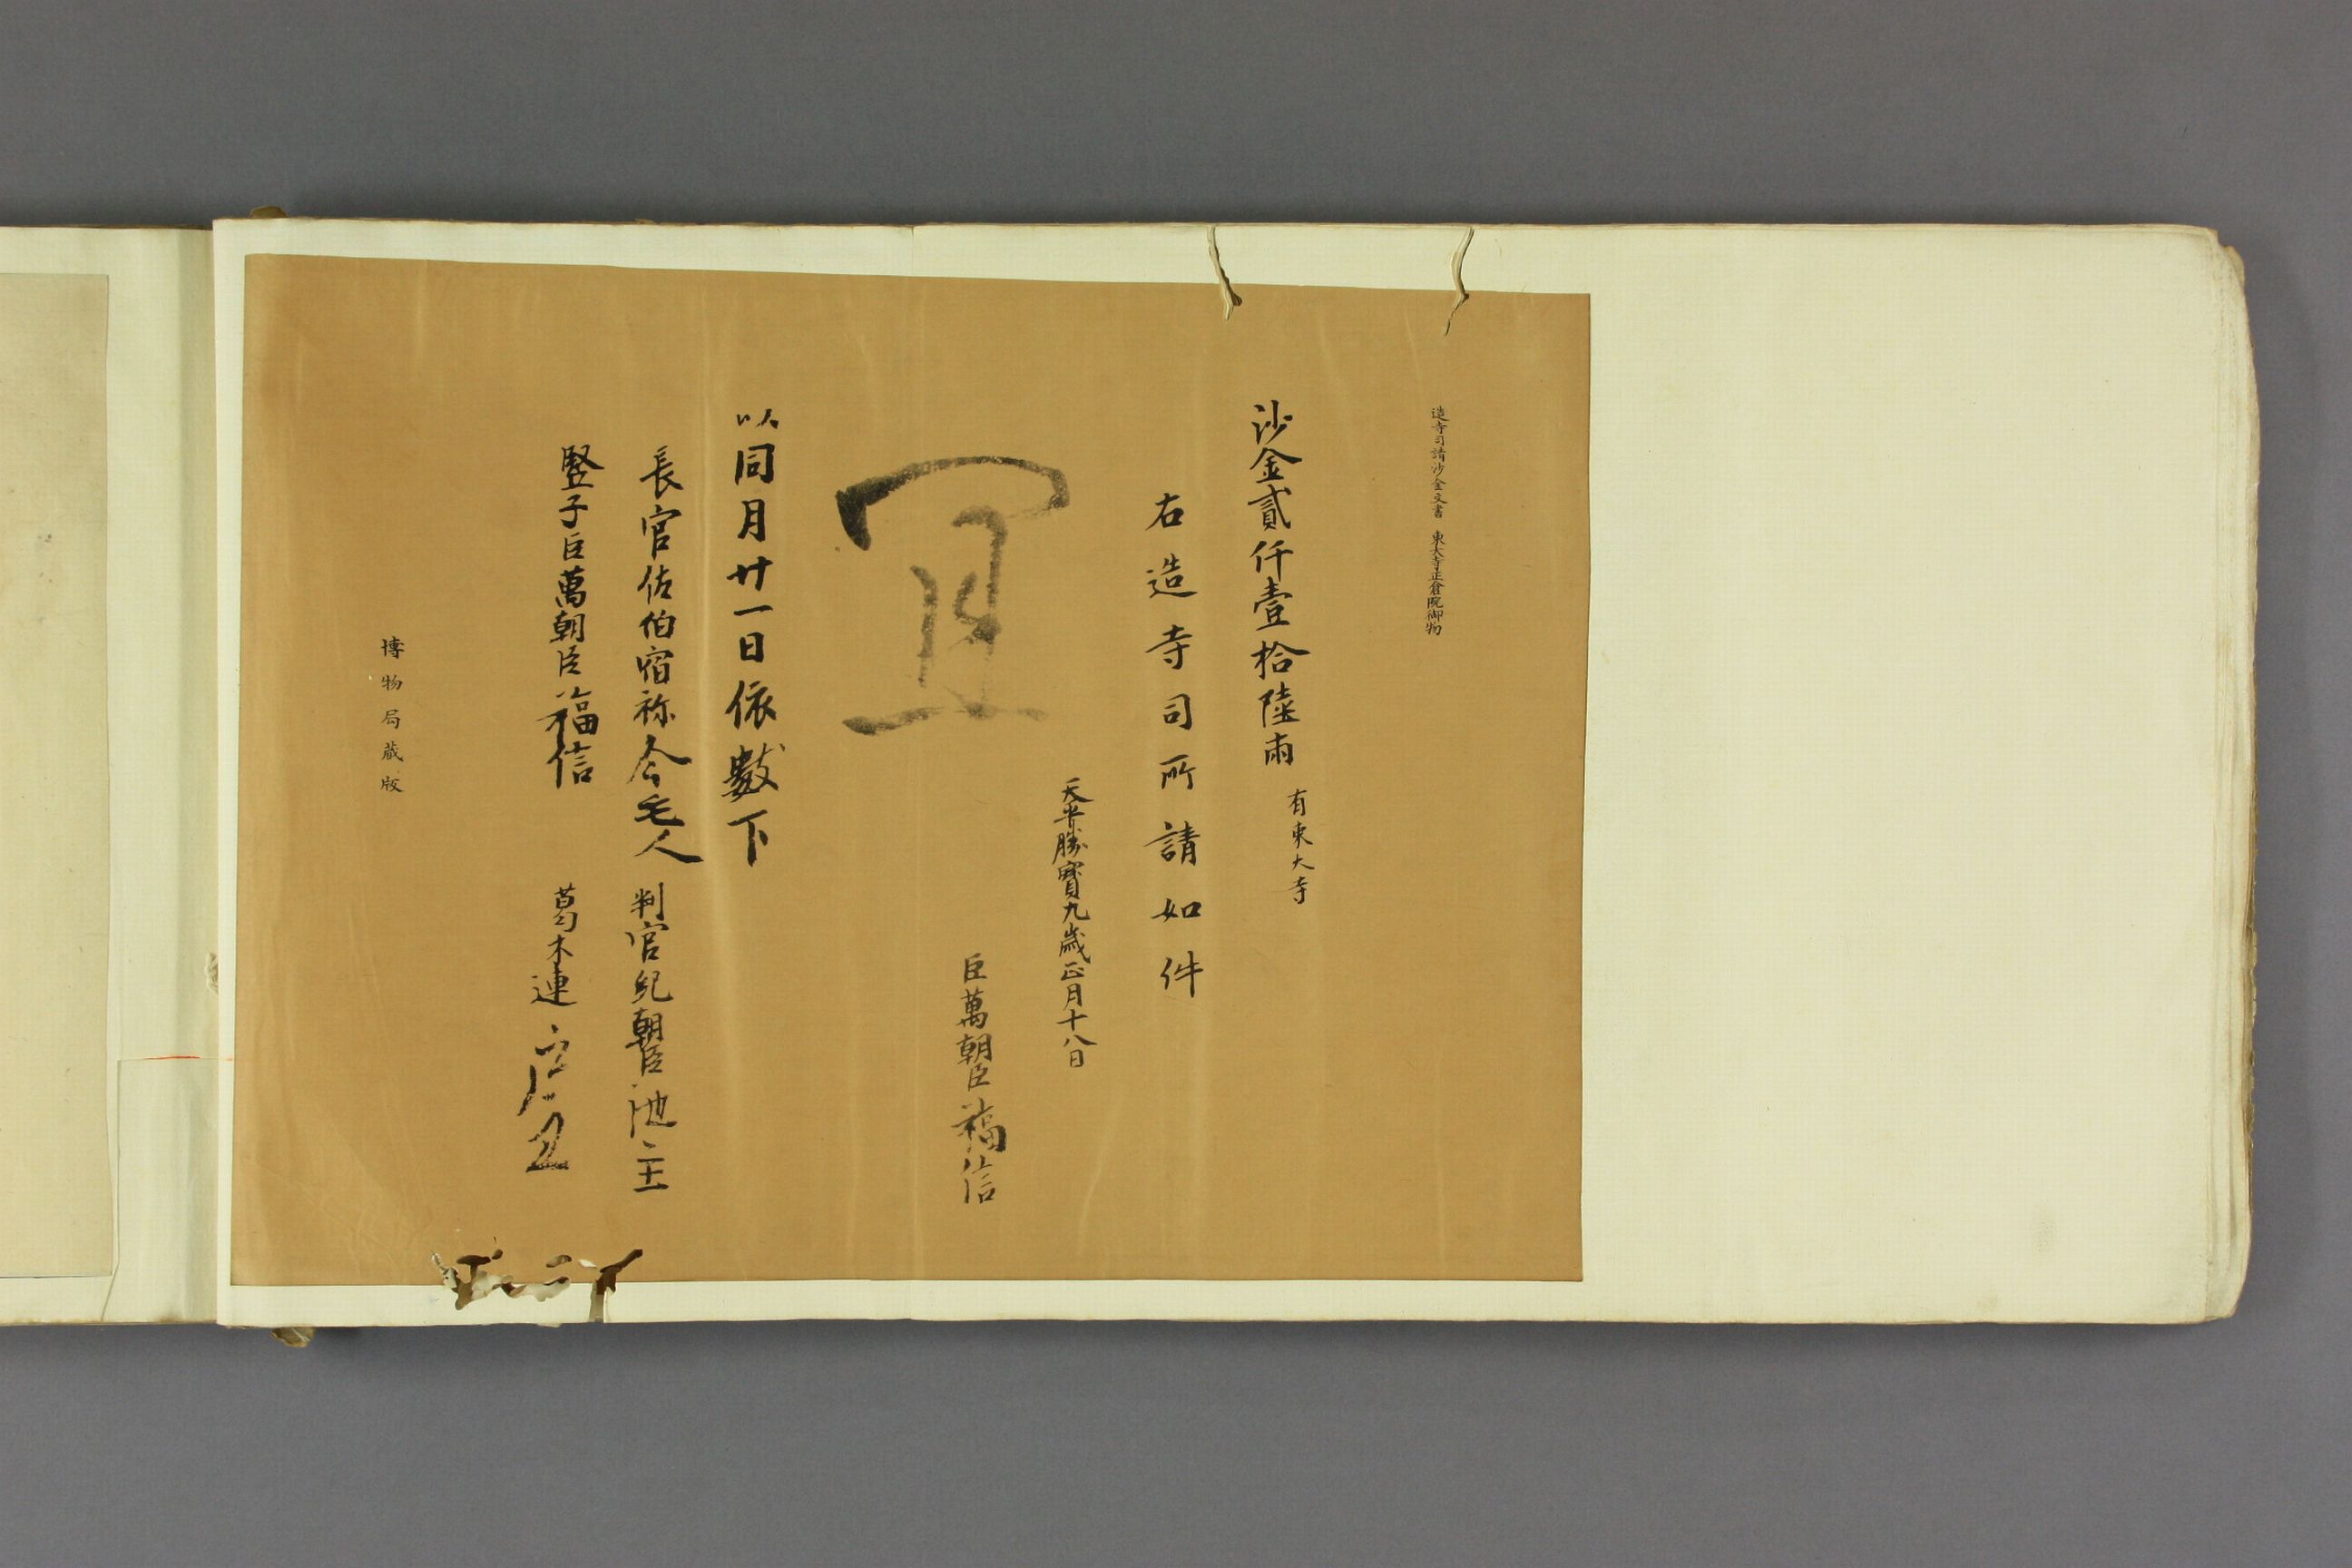 造寺司請沙金文書 東大寺正倉院御物
沙金貳仟壹拾陸兩 有東大寺
右造寺司所請如件
天平勝寶九歳正月十八日
巨萬朝臣福信
宜
以同月廿一日依數下
長官佐伯宿祢今毛人 判官紀朝臣池主
竪子巨萬朝臣福信 葛木連戸主
博物局蔵版